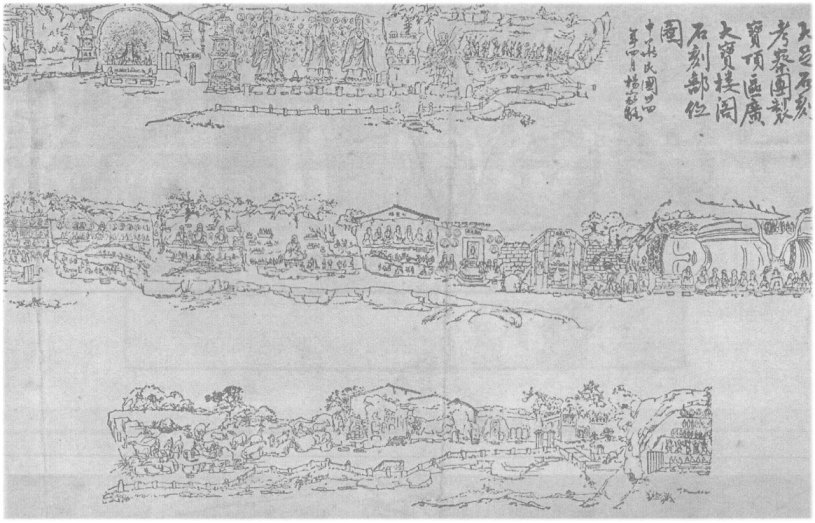 大足石刻
考察團製
寶頂區廣
大寶樓閣
石刻部位
圖
中華民國卅四
年四月楊家駱